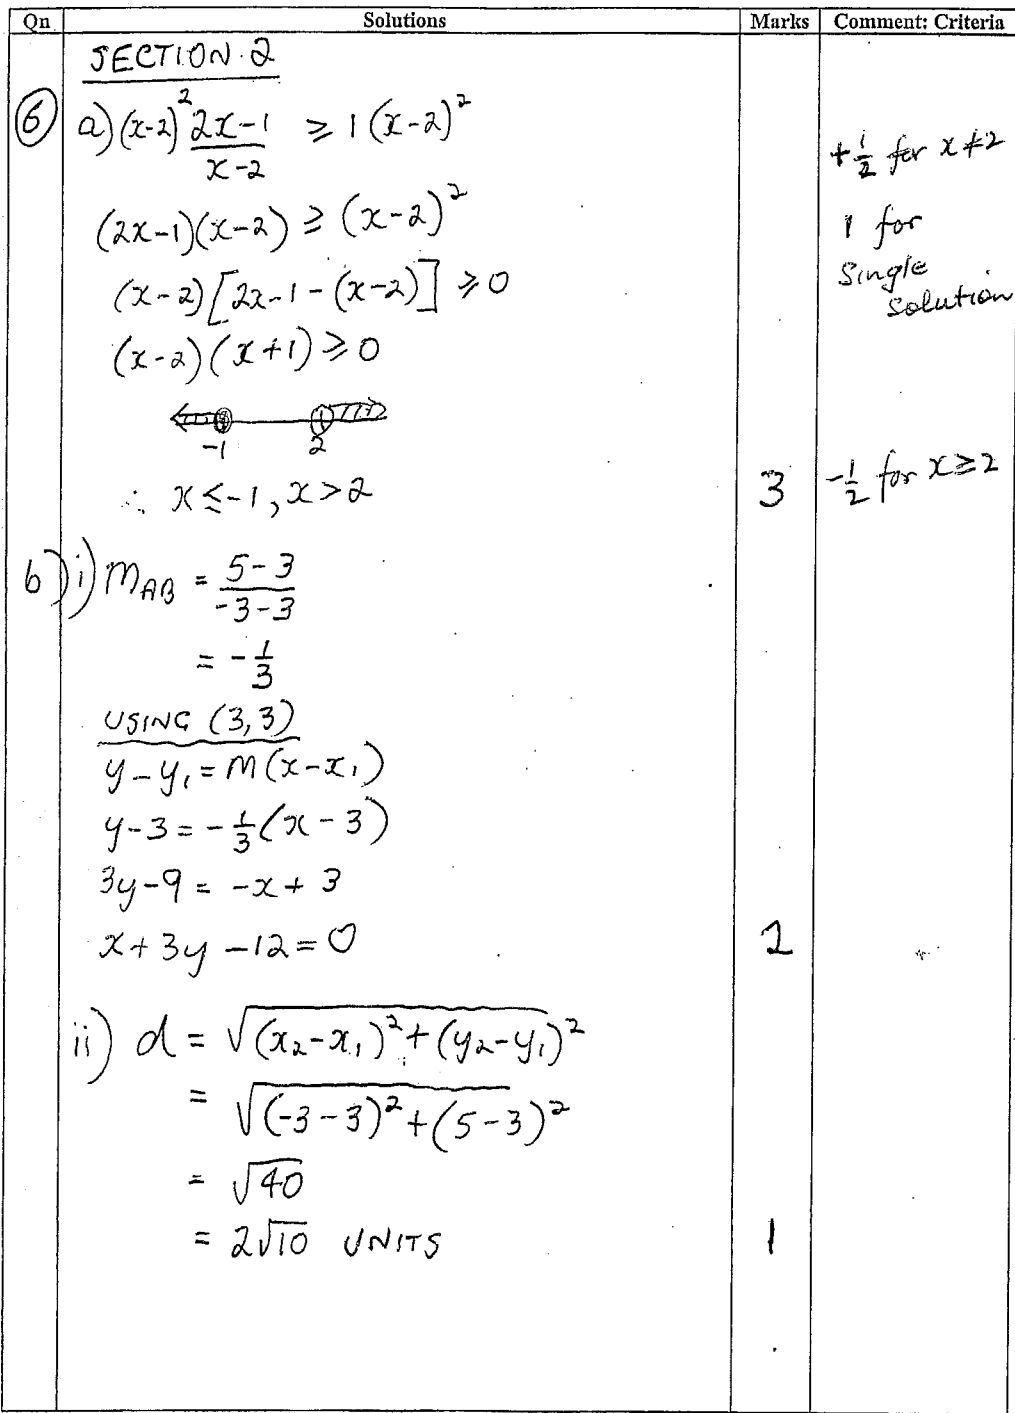 Qn Solutions Marks Comment: Criteria
SECTION 2
6 a) (x-2)² (2x-1)/(x-2) ≥ 1(x-2)²
+½ for x≠2
(2x-1)(x-2) ≥ (x-2)²
1 for
single
solution
(x-2)[2x-1-(x-2)] ≥ 0
(x-2)(x+1) ≥ 0
-1 2
∴ x ≤ -1, x > 2 3 -½ for x ≥ 2
b) i) m_AB = (5-3)/(-3-3)
= -1/3
USING (3,3)
y-y₁ = m(x-x₁)
y-3 = -1/3(x-3)
3y-9 = -x+3
x+3y-12=0 2
ii) d = √((x₂-x₁)²+(y₂-y₁)²)
= √((-3-3)²+(5-3)²)
= √40
= 2√10 UNITS 1